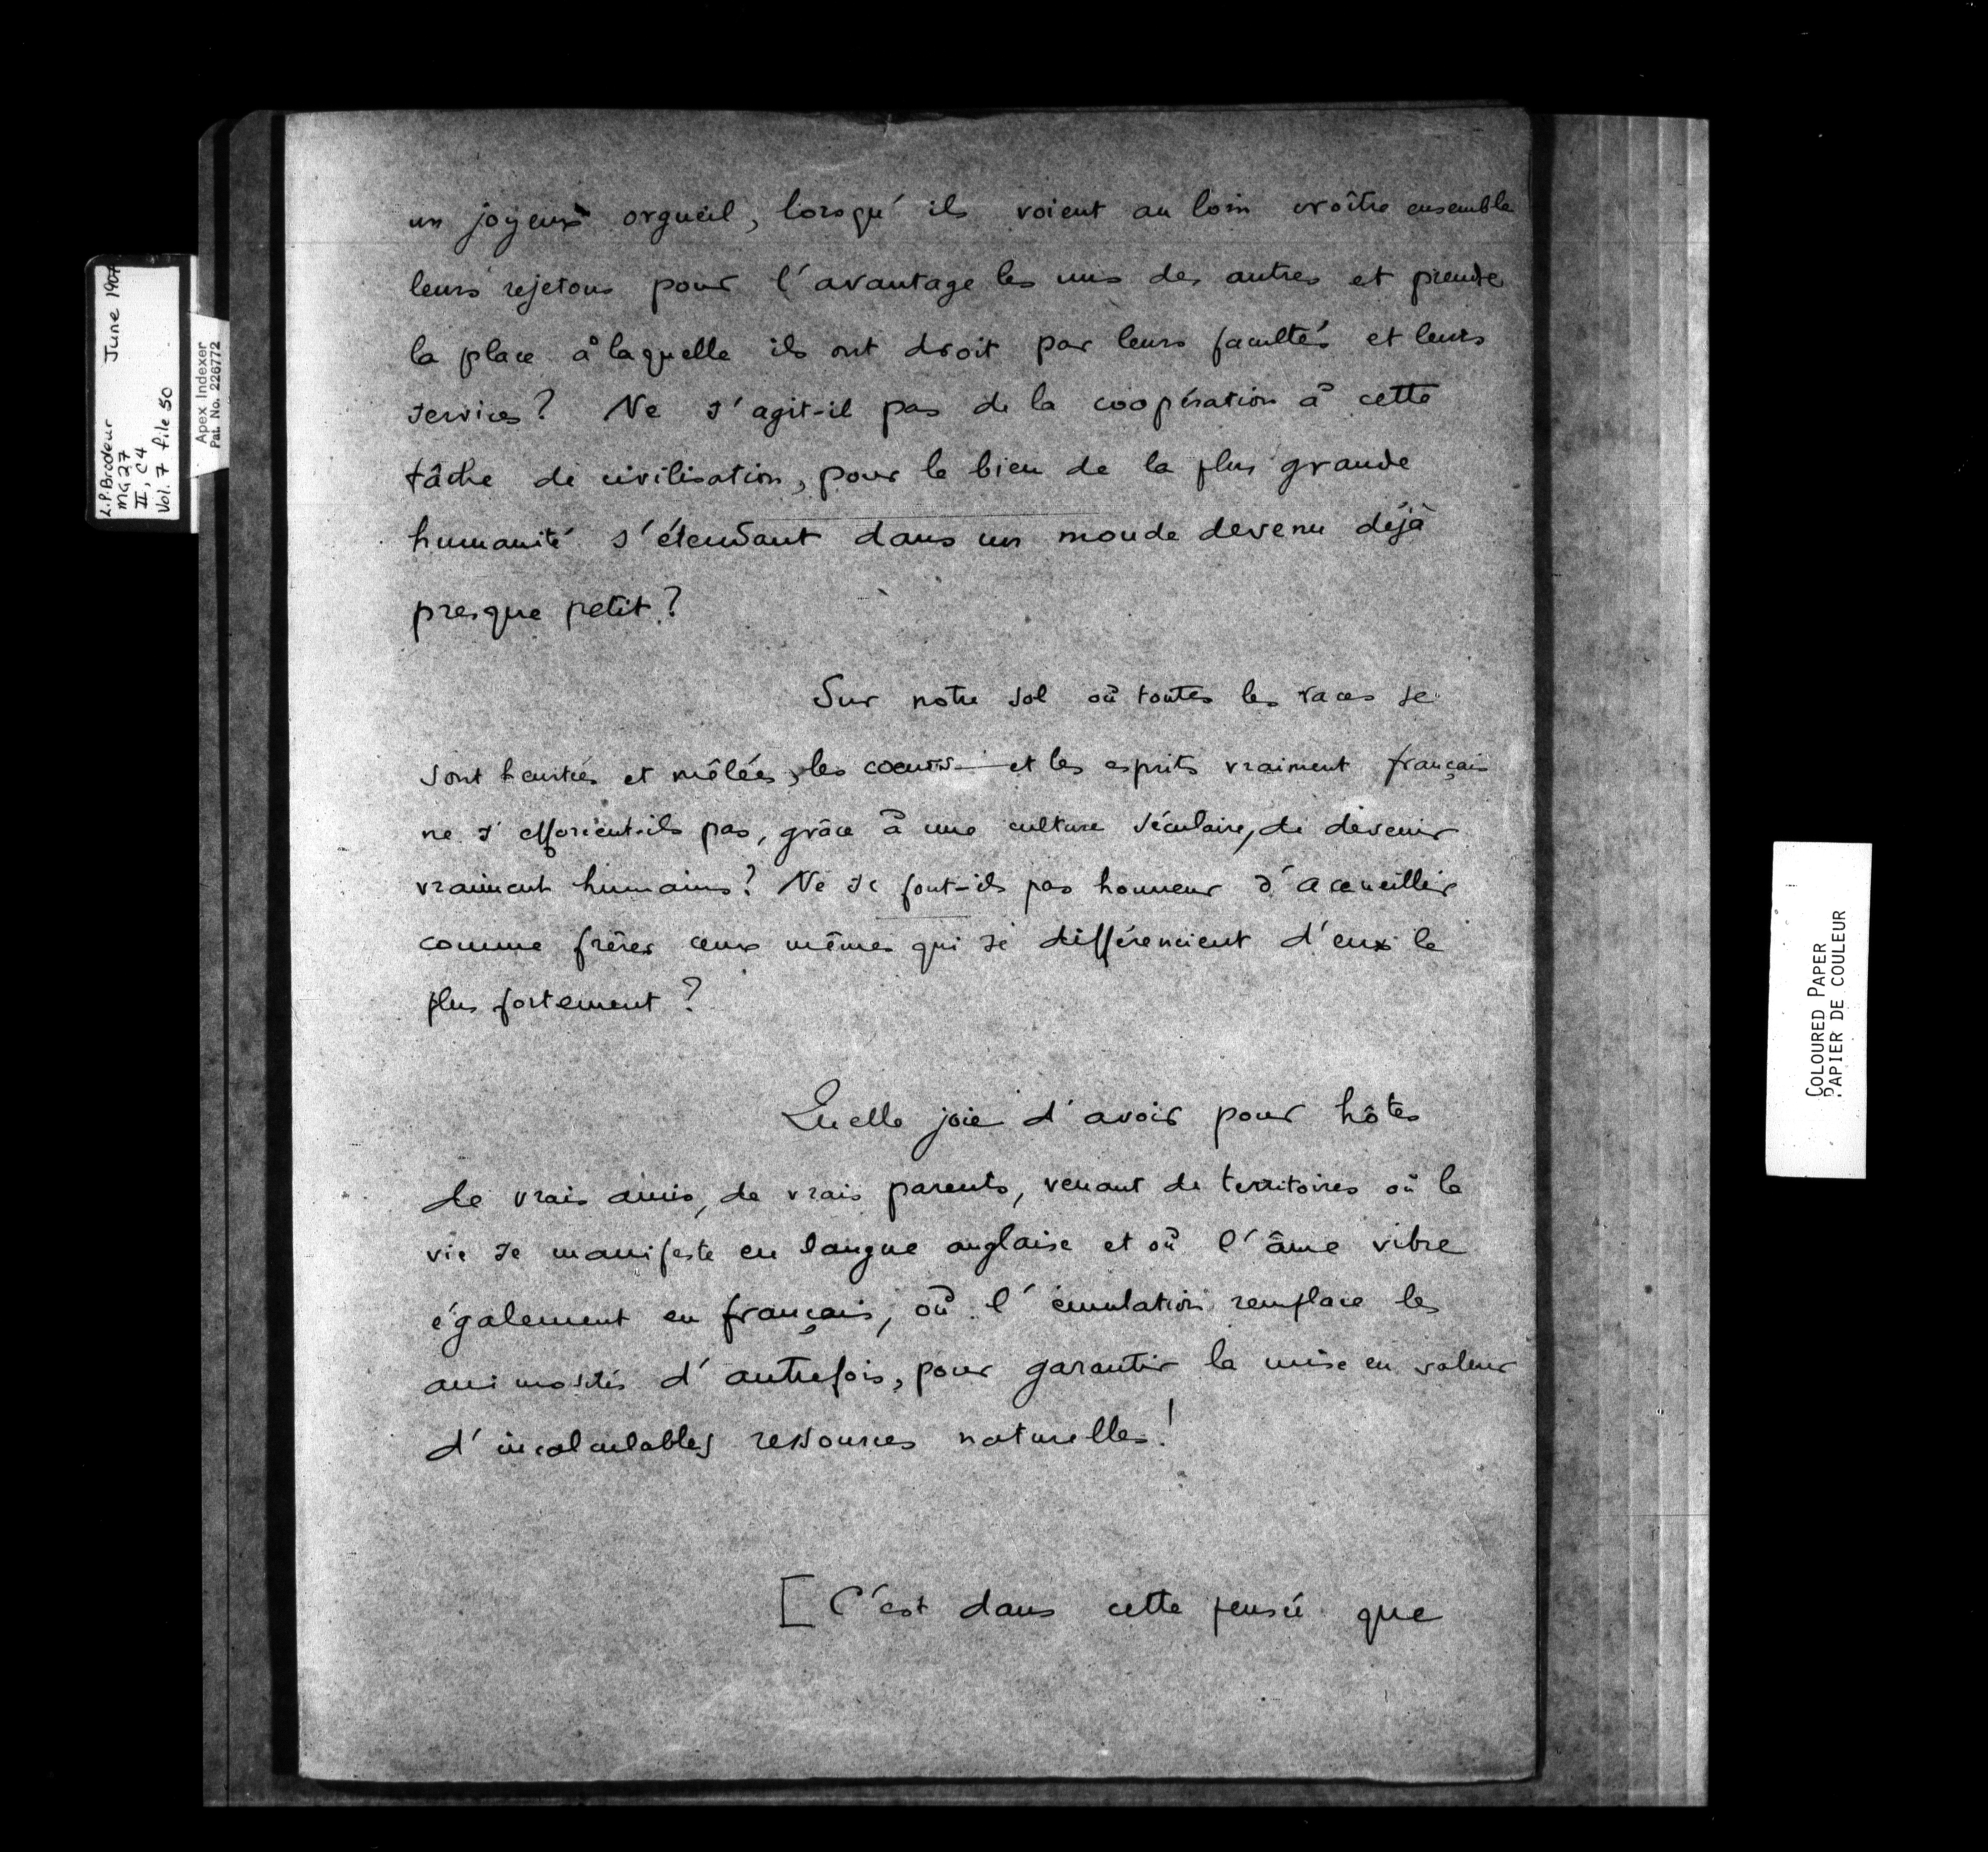 un joyeux orgueil, lorsqu'ils voient au loin croître ensemble
leurs rejetons pour l'avantage les uns des autres et prendre
la place à laquelle ils ont droit par leurs facultés et leurs
services? Ne s'agit-il pas de la coopération à cette
tâche de civilisation, pour le bien de la plus grande
humanité s'étendant dans un monde devenu déjà
presque petit?
Sur notre sol où toutes les races se
sont heurtées et mêlées, les coeurs et les esprits vraiment français
ne s'efforcent-ils pas, grâce à une culture séculaire, de devenir
vraiment humains? Ne se font-ils pas honneur d'accueillir
comme frères ceux mêmes qui se différencient d'eux le
plus fortement?
Quelle joie d'avoir pour hôtes
de vrais amis, de vrais parents, venant de territoires où la
vie se manifeste en langue anglaise et où l'âme vibre
également en français, où l'émulation remplace les
animosités d'autrefois, pour garantir la mise en valeur
d'incalculables ressources naturelles!
[ C'est dans cette pensée que
L.P. Brodeur June 1907
MG 27
II, C4
Vol. 7 file 50
Apex Indexer
Pat. No. 226772
COLOURED PAPER
PAPIER DE COULEUR